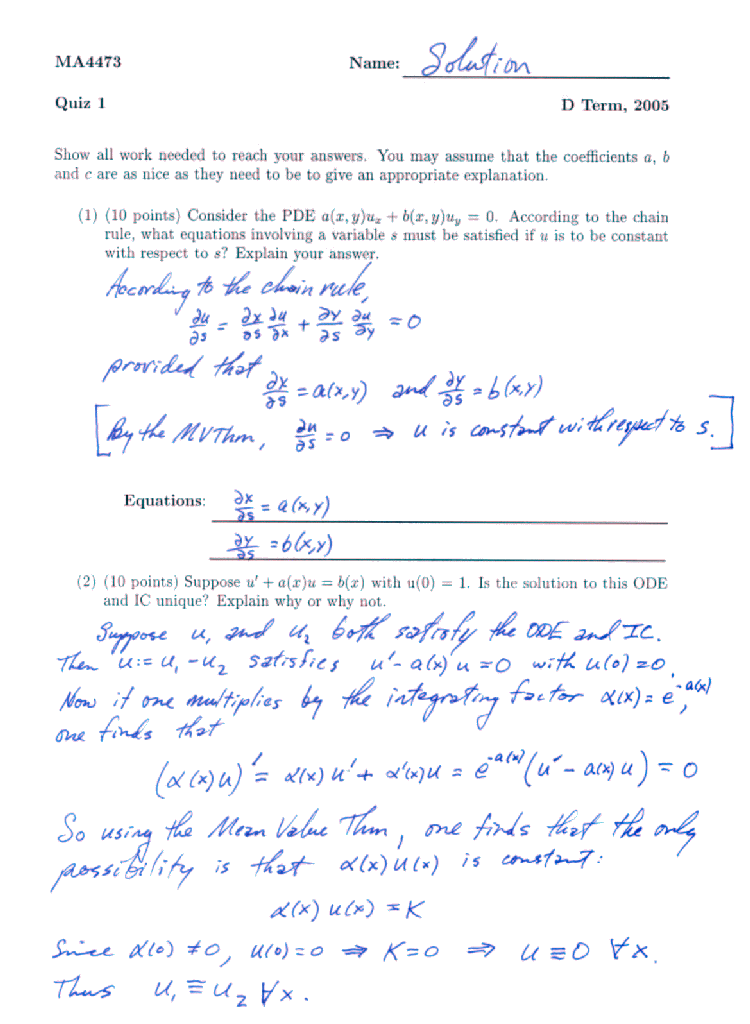 MA4473 Name: Solution
Quiz 1 D Term, 2005
Show all work needed to reach your answers. You may assume that the coefficients a, b
and c are as nice as they need to be to give an appropriate explanation.
(1) (10 points) Consider the PDE a(x, y)uₓ + b(x, y)u_y = 0. According to the chain
rule, what equations involving a variable s must be satisfied if u is to be constant
with respect to s? Explain your answer.
According to the chain rule,
∂u/∂s = ∂x/∂s ∂u/∂x + ∂y/∂s ∂u/∂y = 0
provided that
∂x/∂s = a(x,y) and ∂y/∂s = b(x,y)
[By the MVThm, ∂u/∂s = 0 ⇒ u is constant with respect to s.]
Equations: ∂x/∂s = a(x,y)
∂y/∂s = b(x,y)
(2) (10 points) Suppose u' + a(x)u = b(x) with u(0) = 1. Is the solution to this ODE
and IC unique? Explain why or why not.
Suppose u₁ and u₂ both satisfy the ODE and IC.
Then u := u₁ - u₂ satisfies u' - a(x)u = 0 with u(0) = 0.
Now if one multiplies by the integrating factor α(x) = e^{-a(x)},
one finds that
(α(x)u)' = α(x)u' + α'(x)u = e^{-a(x)}(u' - a(x)u) = 0
So using the Mean Value Thm, one finds that the only
possibility is that α(x)u(x) is constant:
α(x)u(x) = K
Since α(0) ≠ 0, u(0) = 0 ⇒ K = 0 ⇒ u ≡ 0 ∀x.
Thus u₁ ≡ u₂ ∀x.